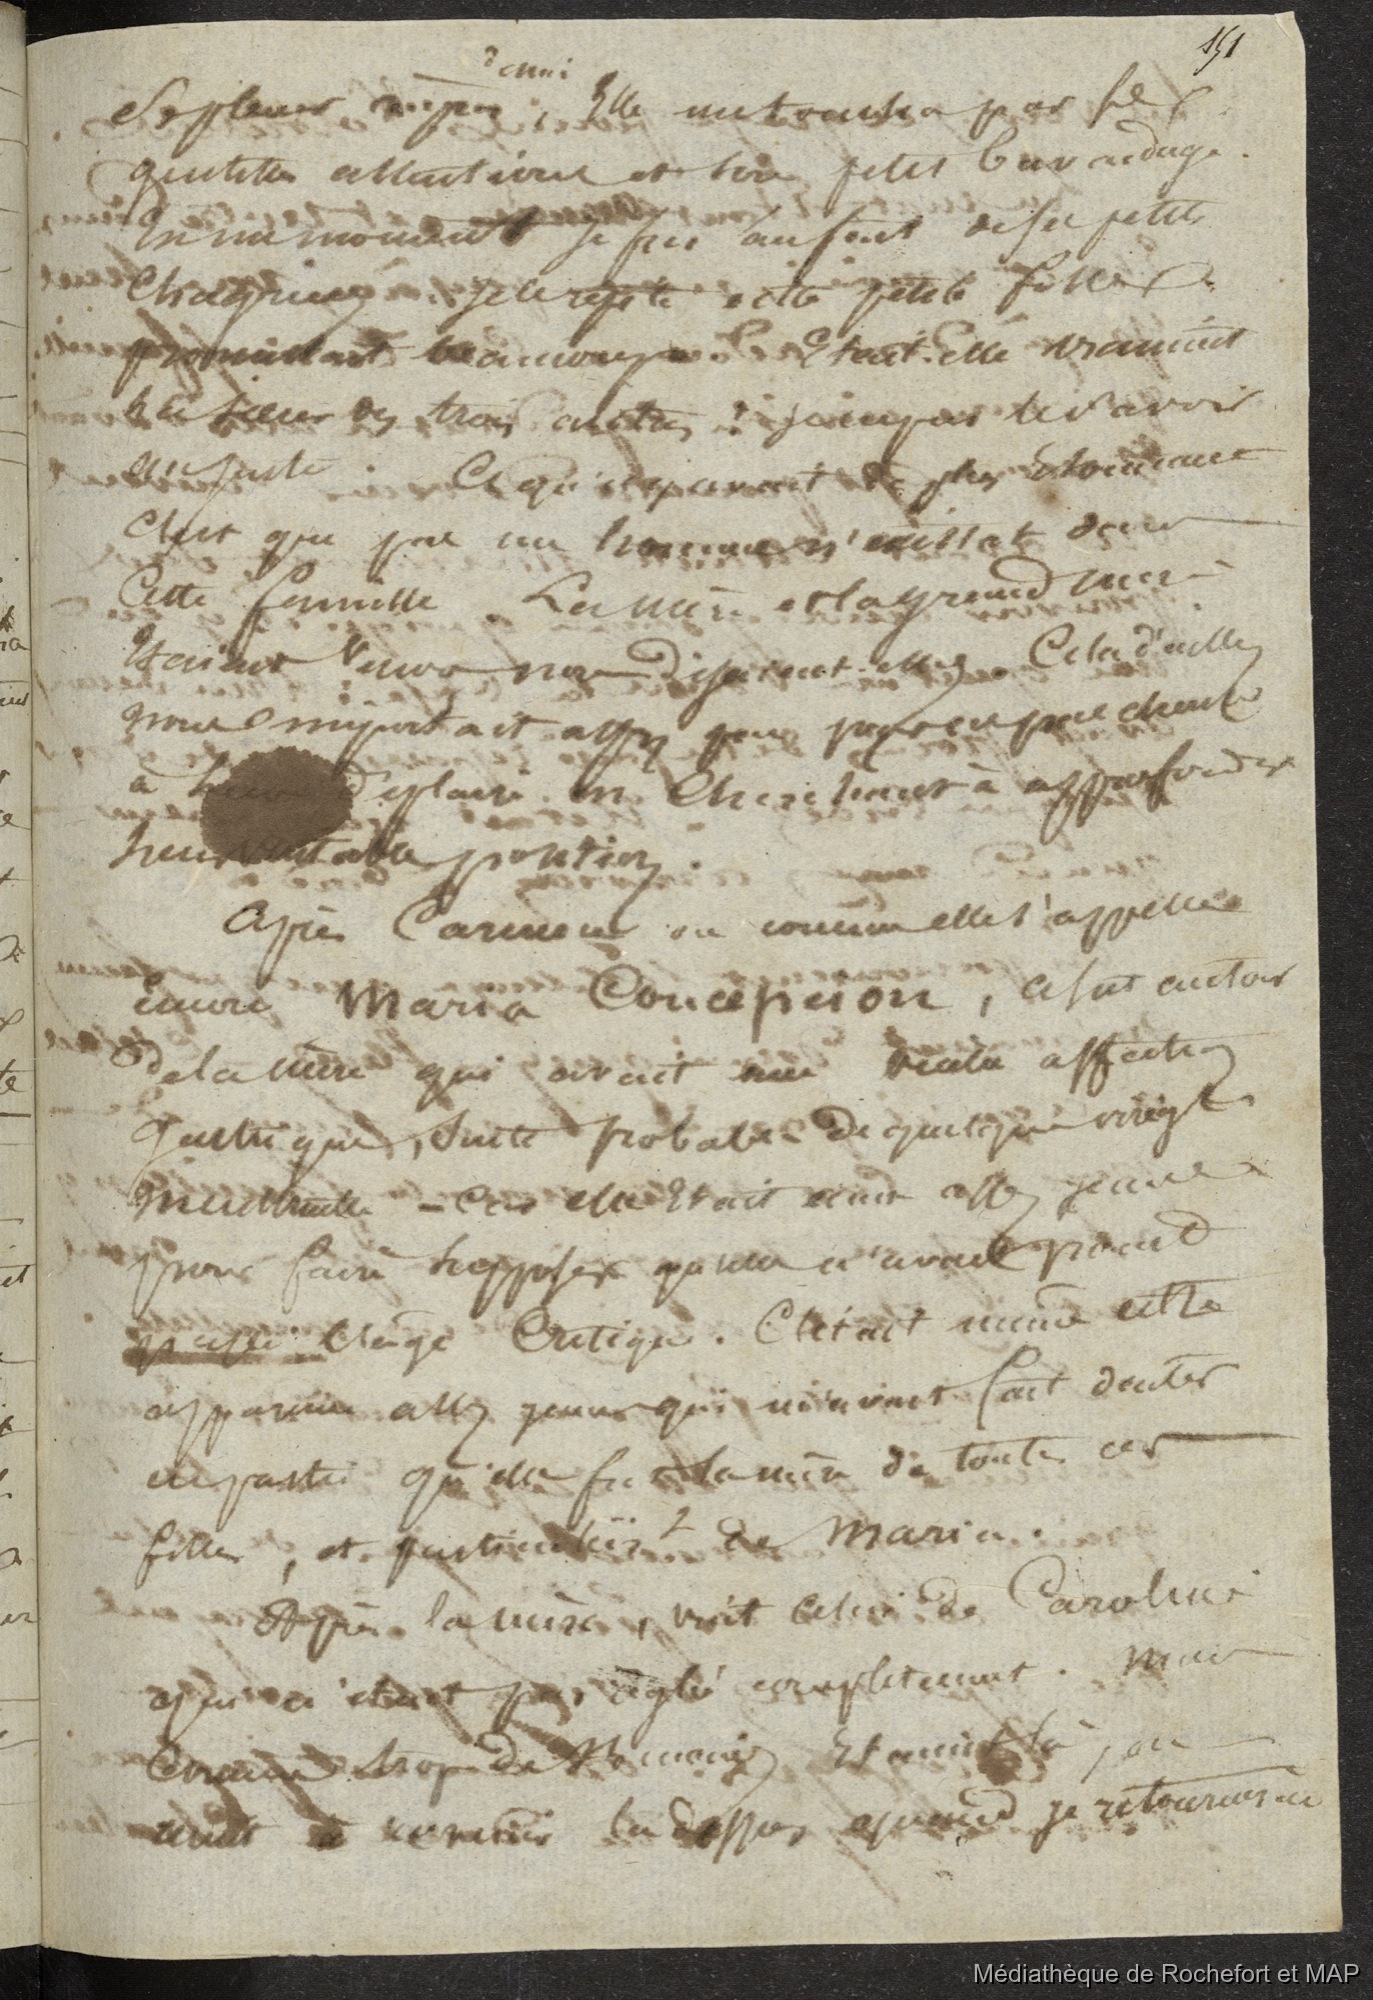 151
demi
Elle me toucha par ses
gentilles attentions et son petit bavardage.
En un moment je fus au fait de ses petits
chagrins, je le répète cette petite fille
promettait beaucoup. Etait-elle vraiment
la sœur des trois autres ? je n'ai pas le savoir
au juste. Ce qui me parait de plus étonnant
c'est que pas un homme n'existat dans
cette famille. La mère et la grand mère
étaient veuves nous disaient-elles. Cela d'ailleurs
nous importait assez peu pour ne pas chercher
à leur déplaire en cherchant à approfondir
leur véritable position.
Après Carmen ou comme elle s'appelle
encore Maria Concepcion, ce fut au tour
de la mère qui avait une seule affection
gastrique, suite probable de quelque règle
mensuelle - car elle était encore assez jeune
pour faire supposer qu'elle n'avait point
passé l'âge critique. C'était même cette
apparence assez jeune qui m'avait fait douter
en partie qu'elle fut la mère de toutes ces
filles, et particulièrt de Maria.
Après la mère, vint celui de Caroline
qui n'était pas réglé complètement. Mais
comme trop de étaient là
quand je retournerai